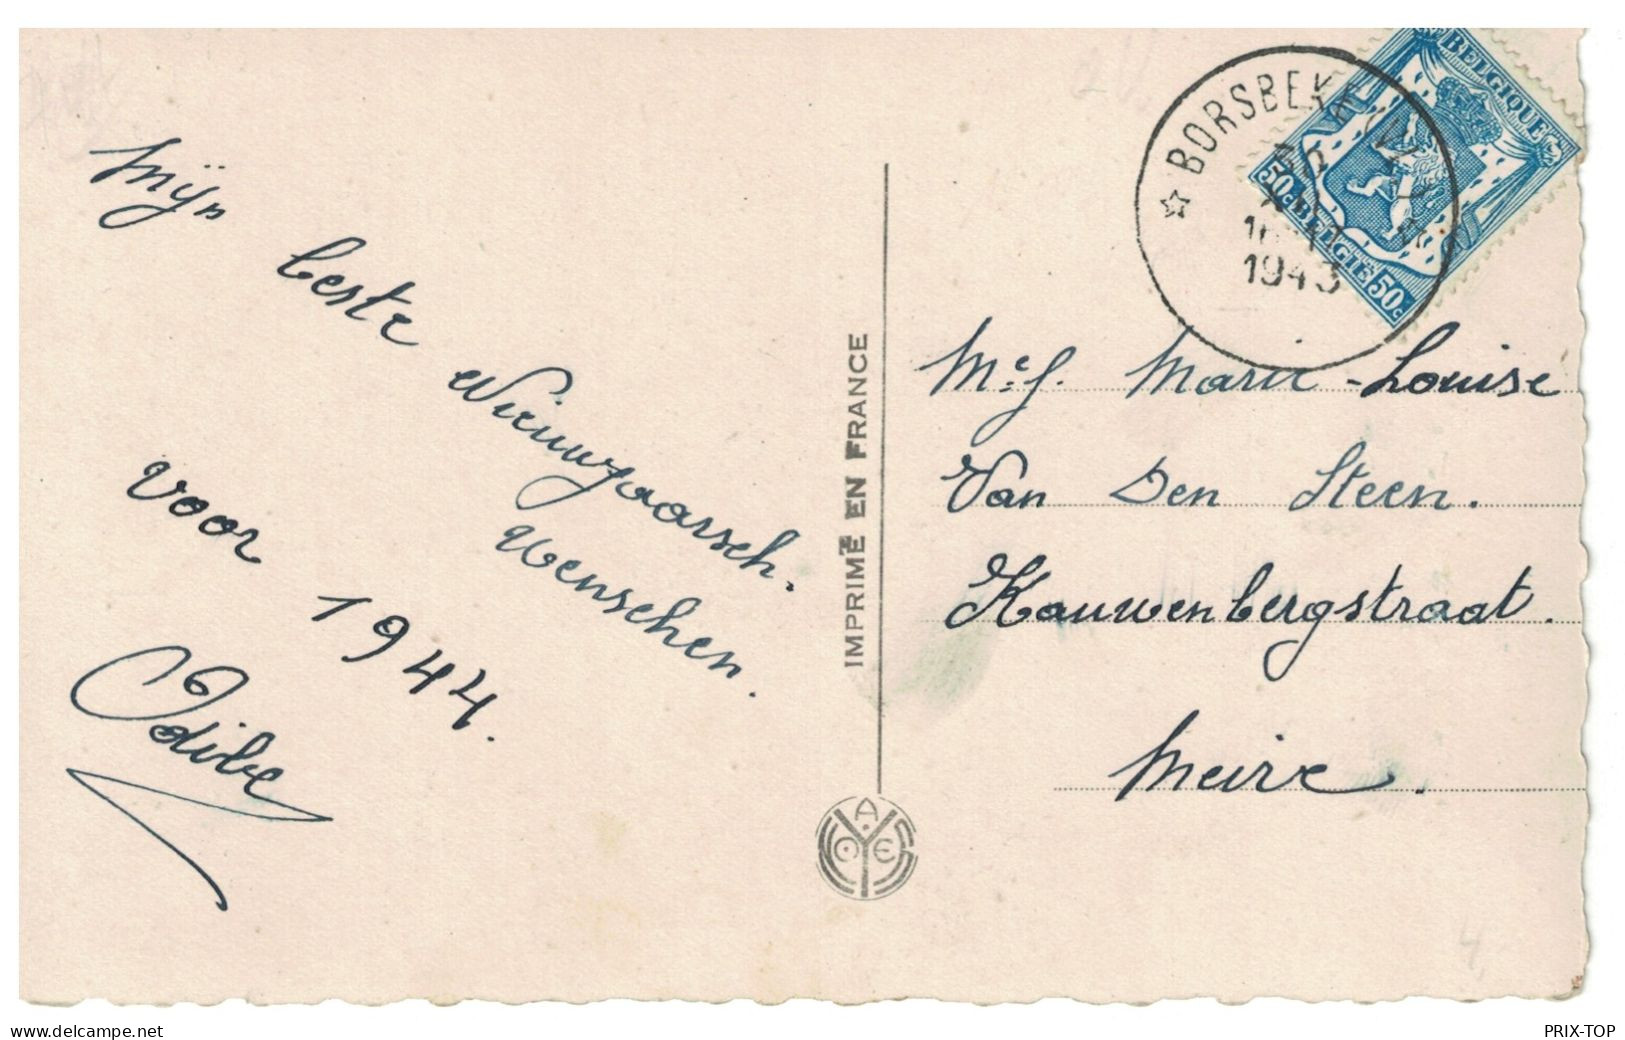 Mijn
beste
Nieuwjaarsch.
wenschen.
voor 1944.
Odile
IMPRIMÉ EN FRANCE
A
YVES
BORSBEKE
1943
BELGIQUE
50c BELGIË 50c
Mej. Marie-Louise
Van Den Steen.
Kauwenbergstraat.
Meire.
4
www.delcampe.net
PRIX-TOP